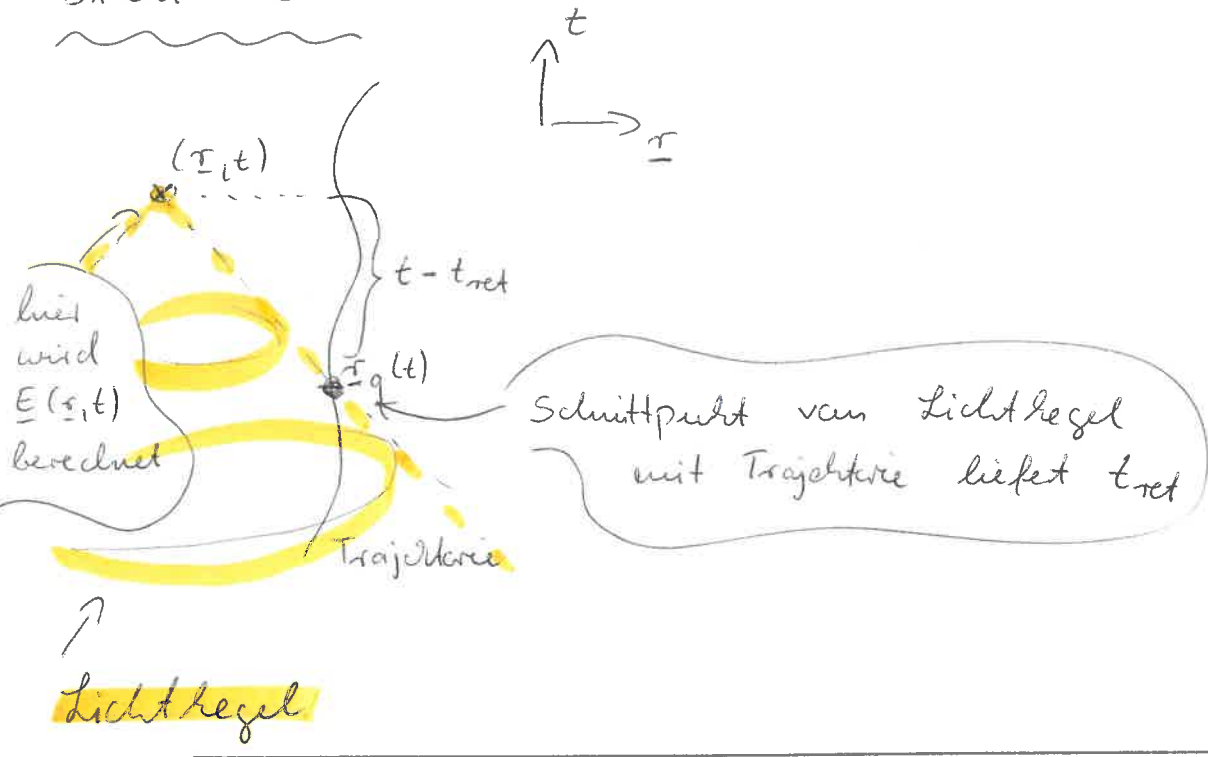 t
r
(r, t)
t - t_ret
hier
wird
E(r, t)
berechnet
r_q(t)
Schnittpukt von Lichtkegel
mit Trajektorie liefert t_ret
Trajektorie
Lichtkegel